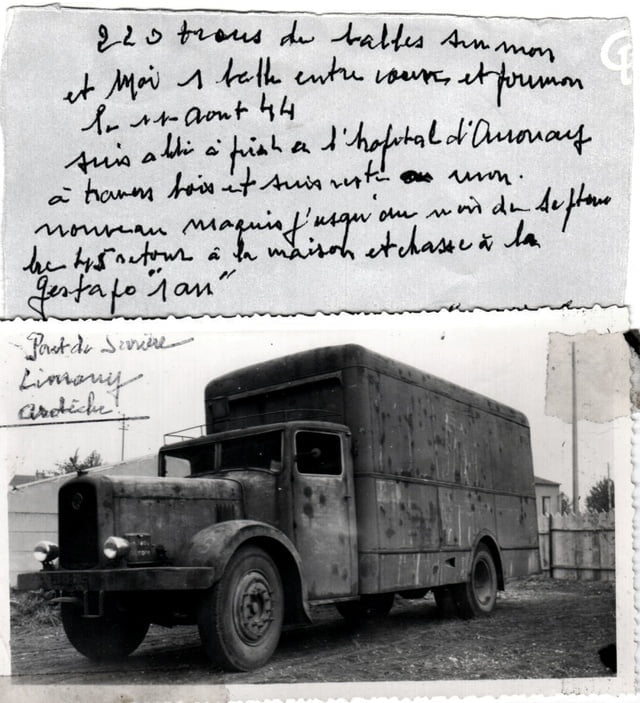 220 trous de balles sur mon
et Moi 1 balle entre coeur et poumon
le 11 Aout 44
suis allé à pied a l'hopital d'Annonay
à travers bois et suis mon.
nouveau maquis j'usqu'au mois de Septem
bre 45 retour à la maison et chasse à la
gestapo "1 an"
Pont de Serrière
Limony
Ardèche